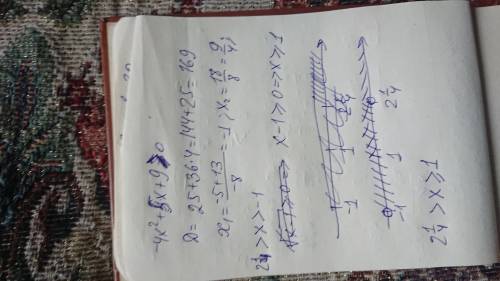 -4x²+5x+9>0
D= 25+36·4=144+25=169
x₁= -5+13/-8 = -1; x₂= 18/8 = 9/4;
2 1/4 > x > -1
x-1≥0=>x≥1
-1 1 2 1/4
-1 1 2 1/4
2 1/4 > x ≥ 1